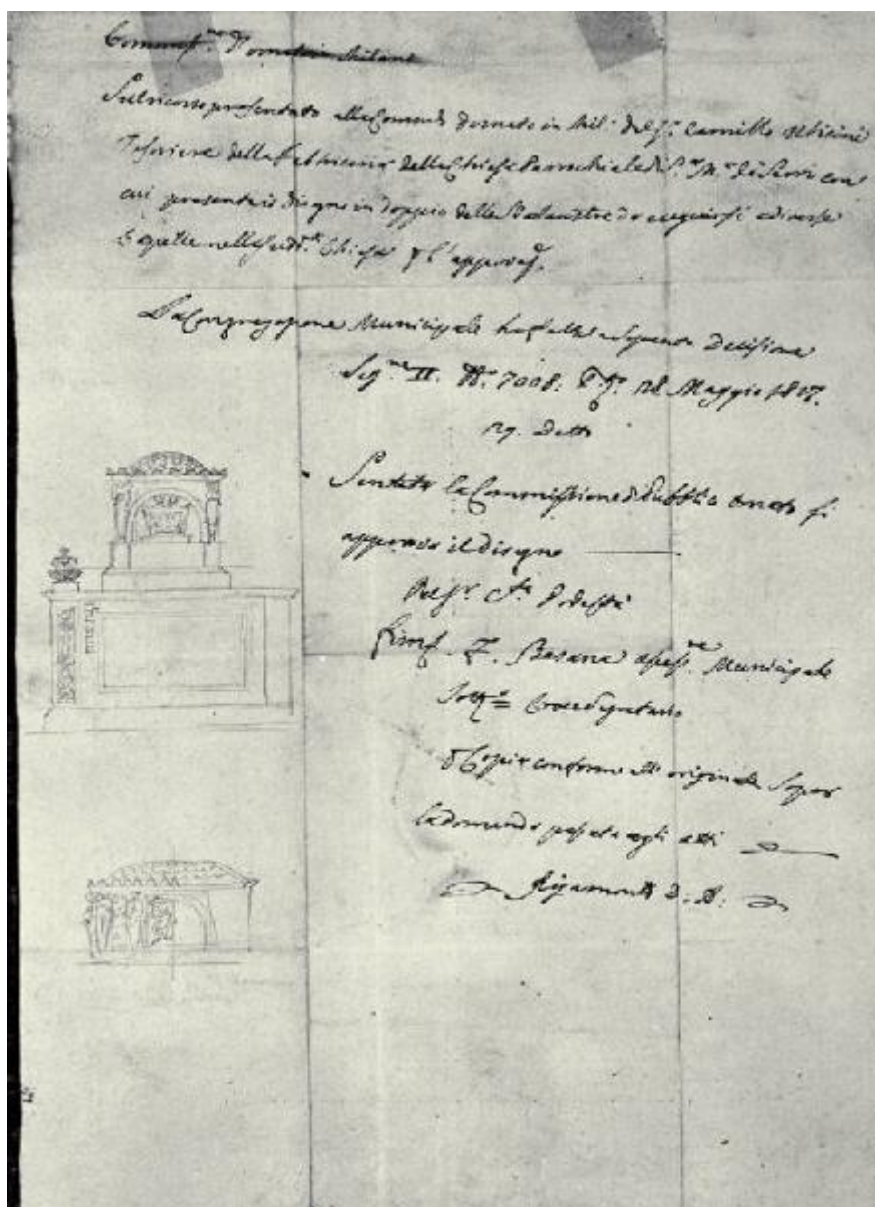 Commiss.ne d'ornato in Milano
Sul ricorso presentato alla Commis. d'ornato in Mil.o dal S.r Camillo
Tesoriere della Fabbrica della Chiesa Parrochiale di S.ta M.a con
cui presenta il disegno in doppio delle Balaustre da eseguirsi
e quelle nella sud.ta Chiesa p l'approvaz.e
La Congregazione Municipale ha fatto la seguente Decisione
Sez.ne II. N.o 7008. 28 Maggio 1817.
29. Detto
Sentita la Commissione di Pubblico Ornato si
approva il disegno
Pel Sr. Podestà
Firm. F. Besana assess.re Municipale
Sott.o
p Copia conforme all'originale Sopra
la domanda passata agli atti
Rigamonti